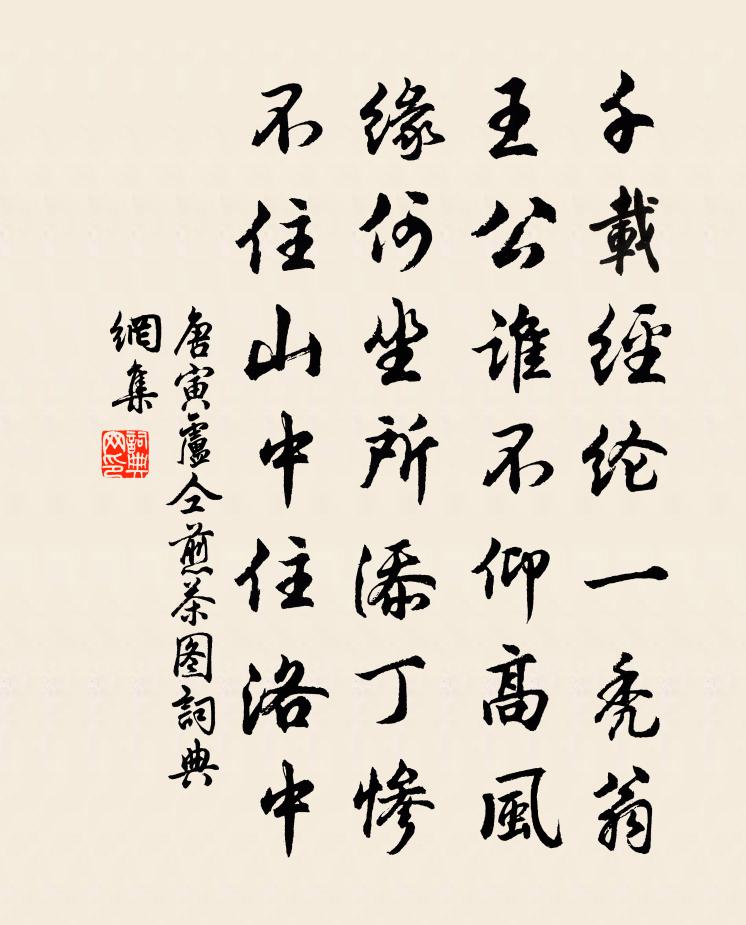 千載經纶一秃翁
王公谁不仰高風
缘何坐所添丁惨
不住山中住洛中
唐寅盧仝煎茶图詞典
網集
詞典
网印